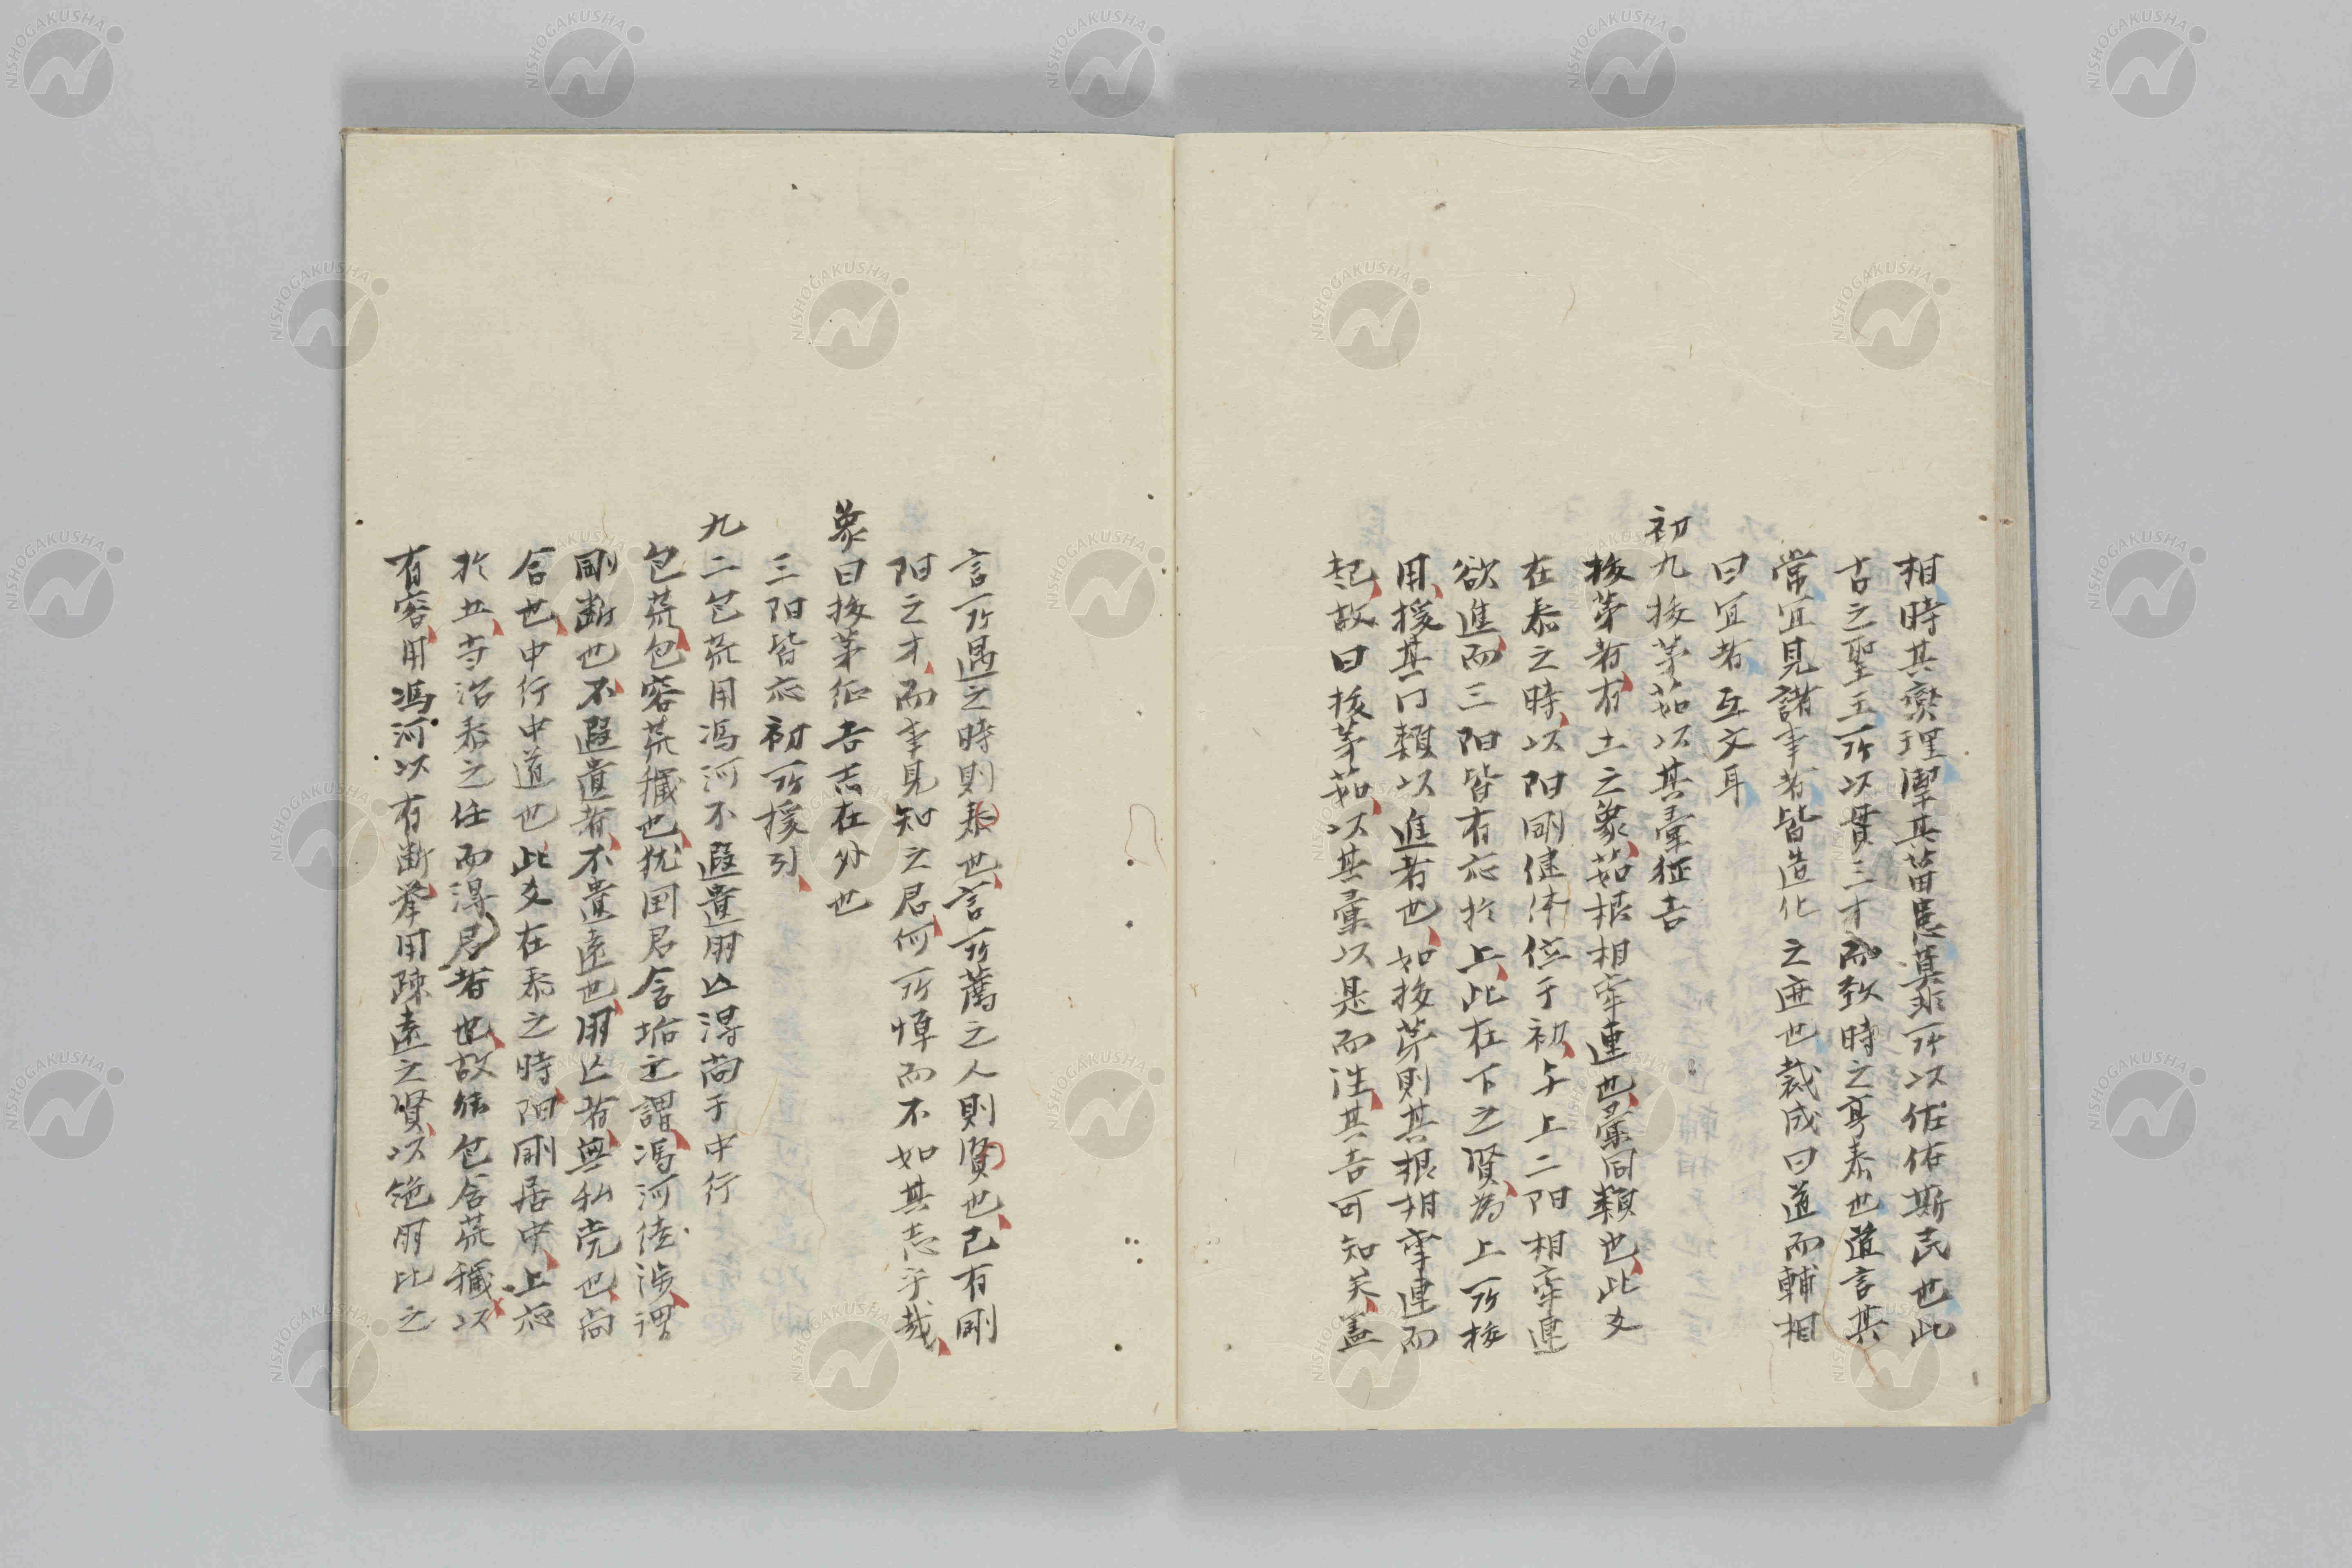 相時其燮理凙其菑患莫非所以佐佑斯民也此
古之聖王所以貫三才而致時之亨泰也道言其
常宜見諸事者皆造化之迹也裁成曰道而輔相
曰宜者互文耳
初九拔茅茹以其彙征吉
拔茅者有土之象茹根相牽連也彙同類也此爻
在泰之時以阳剛健体位于初与上二阳相牽連
欲進而三阳皆有应於上此在下之賢為上所拔
用援其门類以進者也如拔茅則其根相牽連而
起故曰拔茅茹以其彙以是而往其吉可知矣蓋
言所遇之時則泰也言所薦之人則賢也己有剛
阳之才而事見知之君何所惮而不如其志乎哉
象曰拔茅征吉志在外也
三阳皆应初所援引
九二包荒用馮河不遐遺朋亾得尚于中行
包荒包容荒穢也犹国君含垢之謂馮河徒涉謂
剛断也不遐遺者不遺遠也朋亾者無私党也尚
合也中行中道也此爻在泰之時阳剛居中上应
於五寺治泰之任而得君者也故能包含荒穢以
有容用馮河以有断举用踈遠之賢以绝朋比之